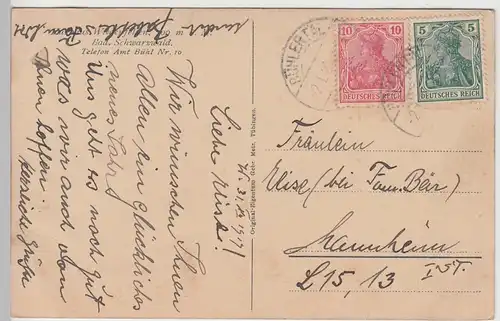 Bad. Schwarzwald.
Telefon Amt Bühl Nr. 10
Liebe Elise!
Wir wünschen Ihnen
allen ein glückliches
neues Jahr!
Uns geht es noch gut
was wir auch von
Ihnen hoffen.
herzliche Grüße
Original-Eigentum Gebr. Metz, Tübingen.
BÜHLERTAL
10 10
DEUTSCHES REICH
5 5
DEUTSCHES REICH
Fräulein
Elise (bei Fam. Bär)
Mannheim
L 15, 13 I. ST.